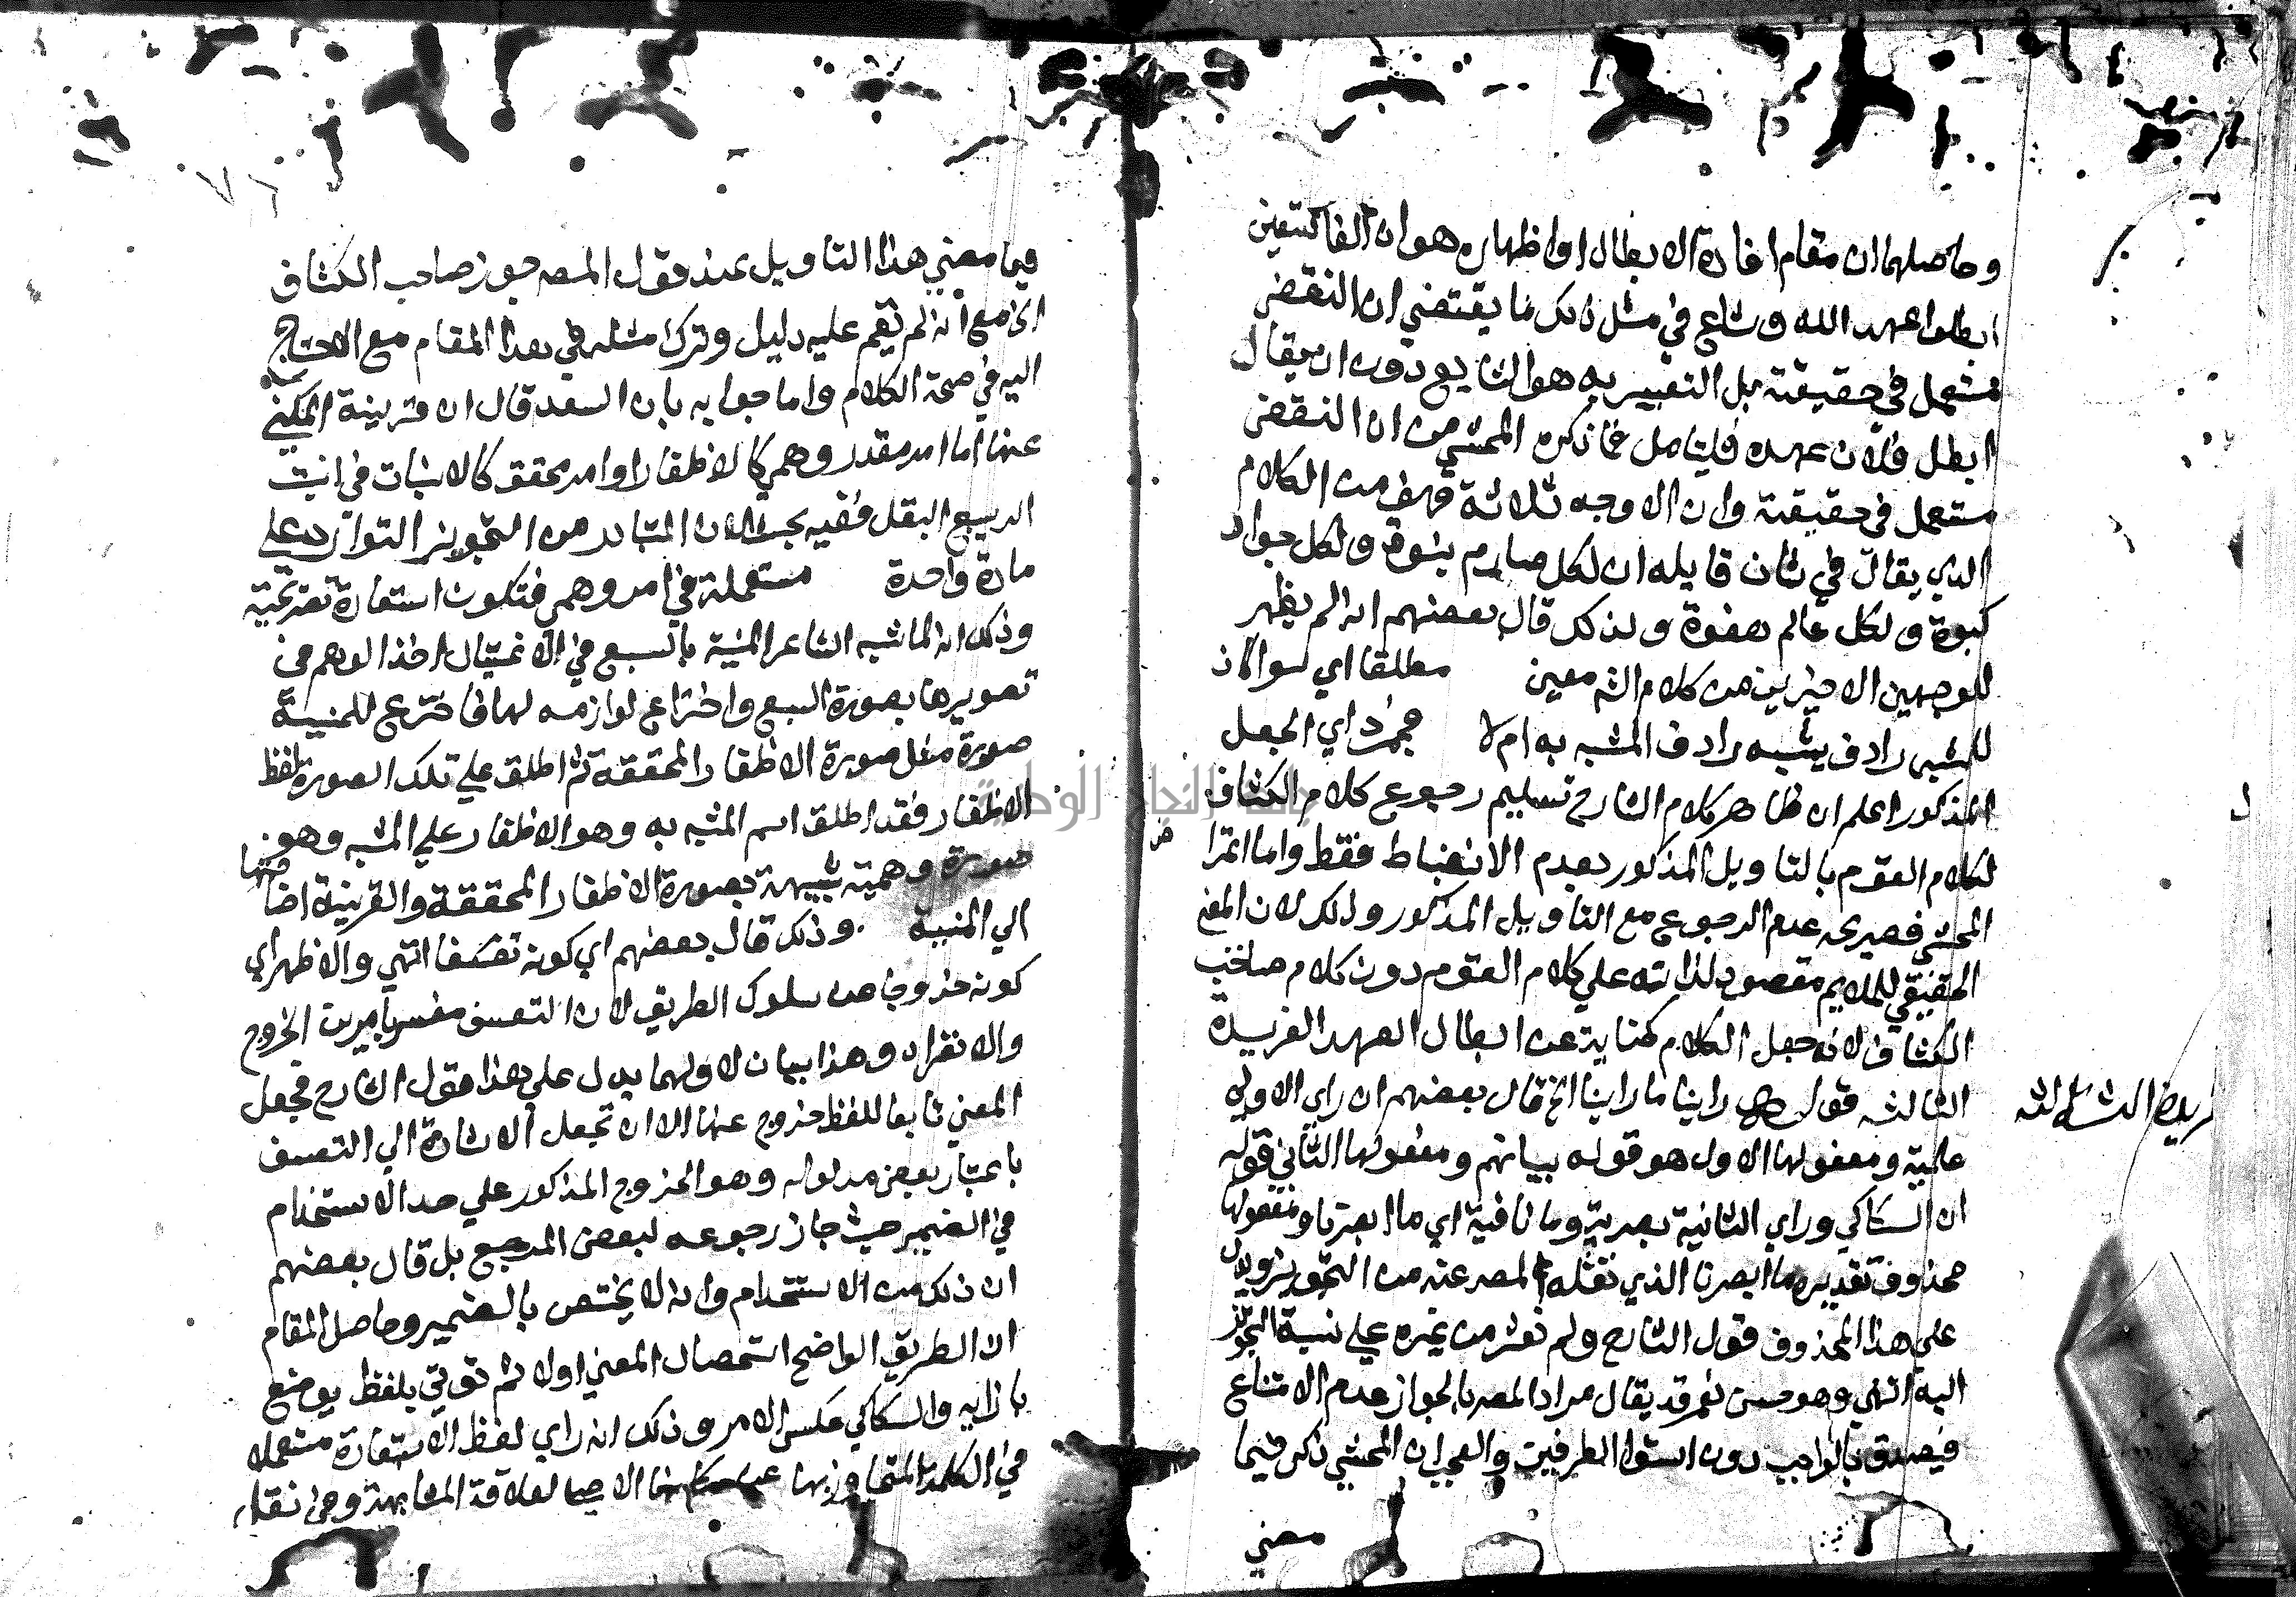 وحاصلهما ان مقام افادة الابطال او اظهاره هو ان الفاسقين
ابطلوا عهد الله وشاع في مثل ذلك ما يقتضي ان النقض
مستعمل في حقيقته بل التعبير به هو الشايع دون ان يقال
ابطل فلان عهده فليتامل مما ذكره المحشي من ان النقض
مستعمل في حقيقته وان الاوجه ثلاثة فهو من الكلام
الذي يقال في شان قايله ان لكل صارم نبوة ولكل جواد
كبوة ولكل عالم هفوة ولذلك قال بعضهم انه لم يظهر
للوجهين الاخيرين من كلام الشه معين مطلقا اي سوا كان
للمشبه رادف يشبه رادف المشبه به ام لا اي الجعل
المذكور اعلم ان ظاهر كلام الشارح تسليم رجوع كلام الكشاف
لكلام القوم بالتاويل المذكور بعدم الانضباط فقط واما
المحشي فصريحه عدم الرجوع مع التاويل المذكور وذلك لان المعني
الحقيقي للملايم مقصود لذاته علي كلام القوم دون كلام صاحب
الكشاف لانه جعل الكلام كناية عن ابطال العهد الفريدة
الثالثه قوله راينا ما راينا الخ قال بعضهم ان راي الاولي
علمية ومفعولها الاول هو قوله بيانهم ومفعولها الثاني قوله
ان السكاكي وراي الثانية بصرية وما نافية اي ما ابصرنا ومفعولها
محذوف تقديره ما ابصرنا الذي نقله المصه عنه من التجويز ويدل
علي هذا المحذوف قول الشارح ولم نعثر من غيره علي نسبة التجويز
اليه انتهي وهو حسن نعم قد يقال مراد المصه بالجواز عدم الامتناع
فيصدق بالواجب دون استوا الطرفين والعجب ان المحشي ذكر فيما
معني
فيما معني هذا التاويل عند قول المصه جوز صاحب الكشاف
الخ مع انه لم يقم عليه دليل وترك مثله في هذا المقام مع الاحتياج
اليه في صحة الكلام واما جوابه بان السعد قال ان قرينة المكني
عنها اما امر مقدر وهمي كالاظفار او امر محقق كالانبات في انبت
الربيع البقل ففيه بحث لان المتبادر من التجويز التوارد علي
مادة واحدة مستعملة في امر وهمي فتكون استعارة تصريحية
وذلك انه لما شبه الشاعر المنية بالسبع في الاغتيال اخذ الوهم في
تصويرها بصورة السبع واختراع لوازمه لها فاخترع للمنية
صورة مثل صورة الاظفار المحققة ثم اطلق علي تلك الصورة لفظ
الاظفار فقد اطلق اسم المشبه به وهو الاظفار علي المشبه وهو
صورة وهمية شبيهة بصورة الاظفار المحققة والقرينة اضافتها
الي المنية وذلك قال بعضهم اي كونه تعسفا انتهي والاظهر اي
كونه خروجا من سلوك الطريق لان التعسف مفسر بامرين الخروج
والانفراد وهذا بيان لاولهما يدل علي هذا قول الشارح فجعل
المعني تابعا للفظ خروج عنها الا ان تجعل الاشارة الي التعسف
باعتبار بعض مدلوله وهو الخروج المذكور علي حد الاستخدام
في الضمير حيث جاز رجوعه لبعض المرجع بل قال بعضهم
ان ذلك من الاستخدام وانه لا يختص بالضمير وحاصل المقام
ان الطريق الواضح استحصال المعني اولا ثم تؤتي بلفظ يوضع
بازايه والسكاكي عكس الامر وذلك انه راي لفظ الاستعارة مستعمله
في الكلمة المتجاوز بها عن مكانها الاصلي لعلاقة المشابهة وحين نقله